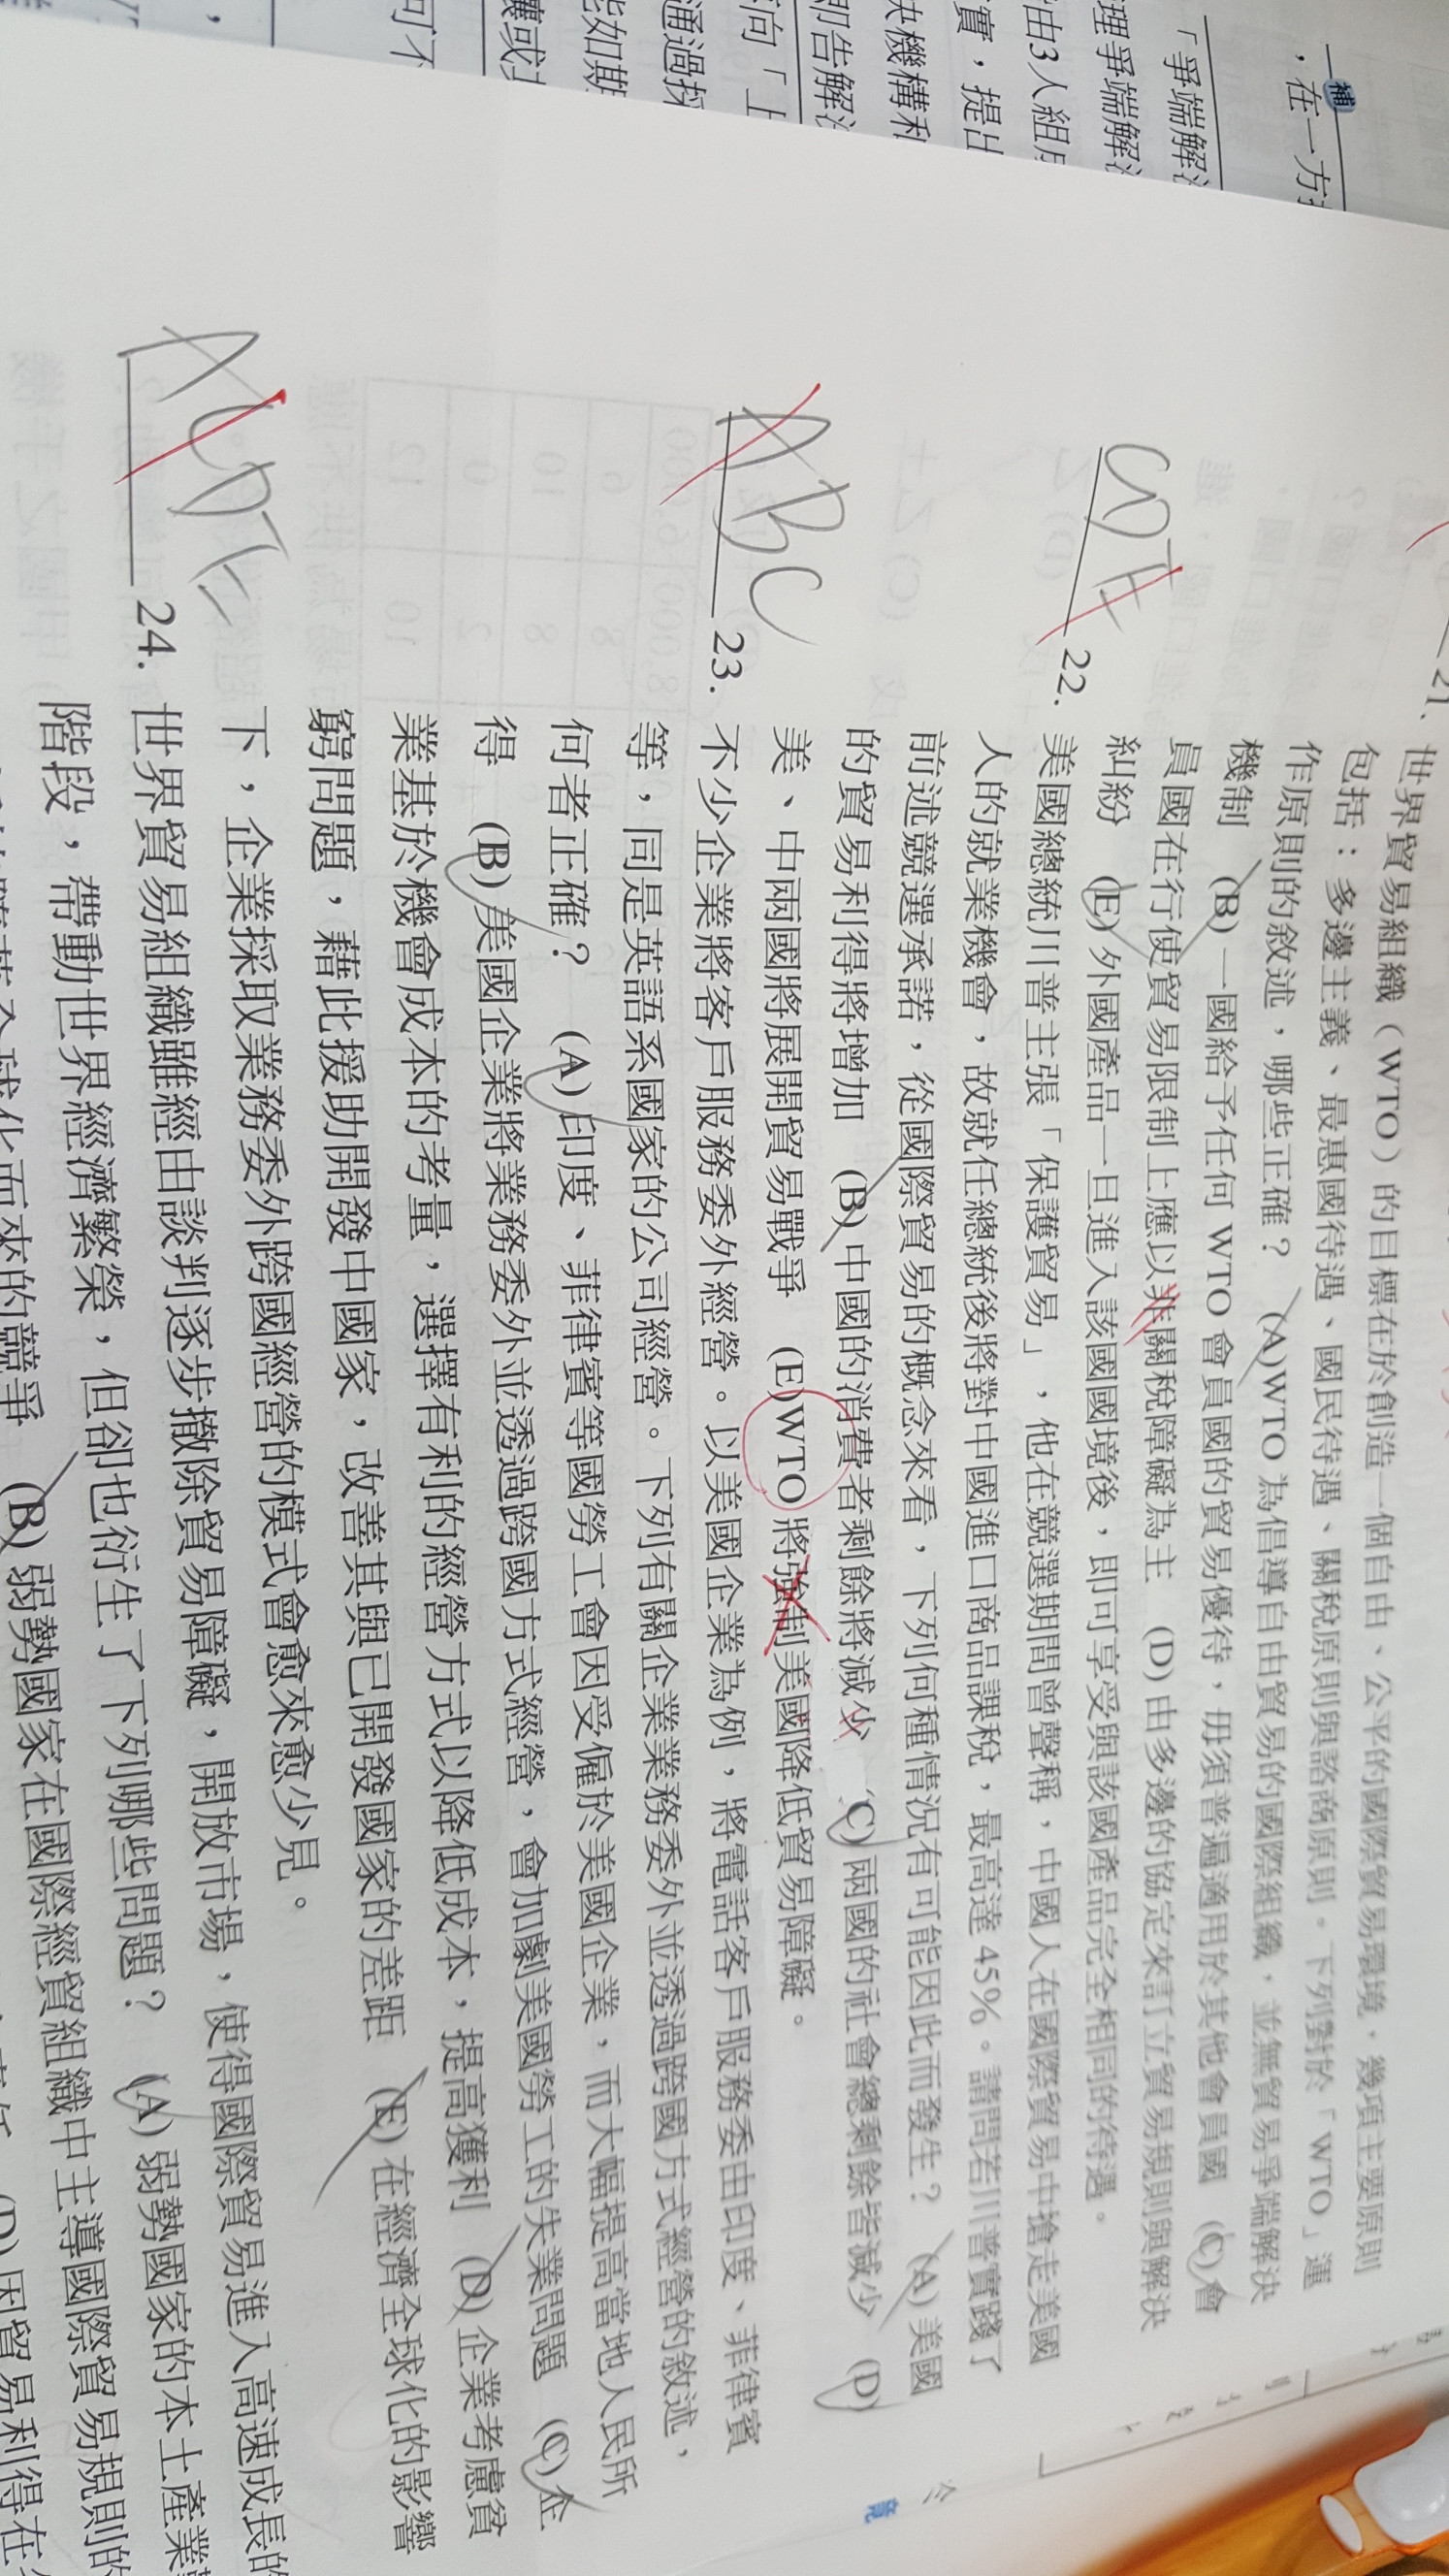 補
，在一方
「爭端解
理爭端解
由3人組
實，提出
決機構和
即告解
向「上
通過採
能如期
讓或
可不
21.
世界貿易組織（WTO）的目標在於創造一個自由、公平的國際貿易環境，幾項主要原則
包括：多邊主義、最惠國待遇、國民待遇、關稅原則與諮商原則。下列對於「WTO」運
作原則的敘述，哪些正確？ (A)WTO 為倡導自由貿易的國際組織，並無貿易爭端解決
機制 (B) 一國給予任何 WTO 會員國的貿易優待，毋須普遍適用於其他會員國 (C) 會
員國在行使貿易限制上應以非關稅障礙為主 (D) 由多邊的協定來訂立貿易規則與解決
糾紛 (E) 外國產品一旦進入該國國境後，即可享受與該國產品完全相同的待遇。
CDE 22. 美國總統川普主張「保護貿易」，他在競選期間曾聲稱，中國人在國際貿易中搶走美國
人的就業機會，故就任總統後將對中國進口商品課稅，最高達 45%。請問若川普實踐了
前述競選承諾，從國際貿易的概念來看，下列何種情況有可能因此而發生？ (A) 美國
的貿易利得將增加 (B) 中國的消費者剩餘將減少 (C) 兩國的社會總剩餘皆減少 (D)
美、中兩國將展開貿易戰爭 (E)WTO 將強制美國降低貿易障礙。
ABC 23. 不少企業將客戶服務委外經營。以美國企業為例，將電話客戶服務委由印度、菲律賓
等，同是英語系國家的公司經營。下列有關企業業務委外並透過跨國方式經營的敘述，
何者正確？ (A) 印度、菲律賓等國勞工會因受僱於美國企業，而大幅提高當地人民所
得 (B) 美國企業將業務委外並透過跨國方式經營，會加劇美國勞工的失業問題 (C) 企
業基於機會成本的考量，選擇有利的經營方式以降低成本，提高獲利 (D) 企業考慮貧
窮問題，藉此援助開發中國家，改善其與已開發國家的差距 (E) 在經濟全球化的影響
下，企業採取業務委外跨國經營的模式會愈來愈少見。
ACDE 24. 世界貿易組織雖經由談判逐步撤除貿易障礙，開放市場，使得國際貿易進入高速成長的
階段，帶動世界經濟繁榮，但卻也衍生了下列哪些問題？ (A) 弱勢國家的本土產業
全球化而來的競爭 (B) 弱勢國家在國際經貿組織中主導國際貿易規則的
(D) 因貿易利得在